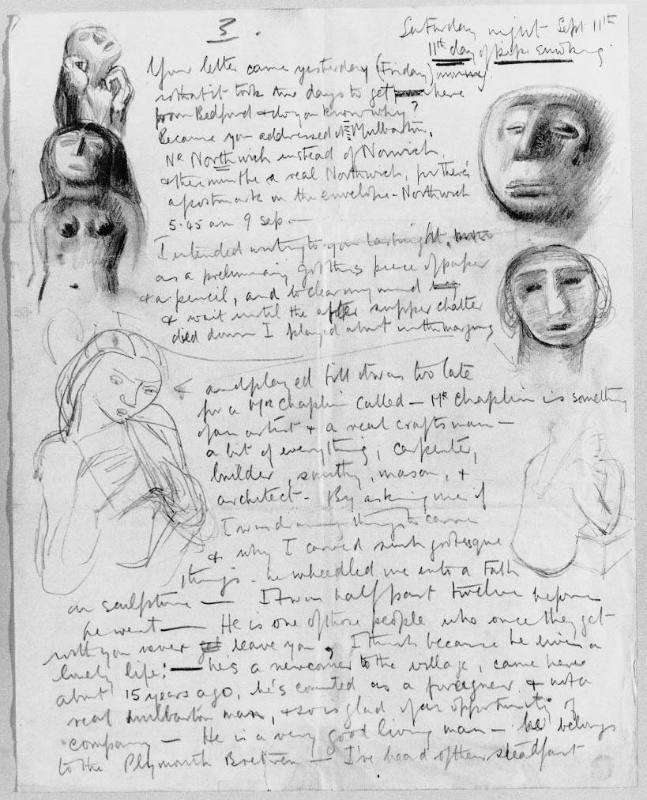 3.
Saturday night - Sept 11th
11th day of pipe smoking.
Your letter came yesterday (Friday) morning
so that it took two days to get here
from Bedford & do you know why?
Because you addressed it Mulbarton,
Nr Northwich instead of Norwich,
& there must be a real Northwich, for there's
a postmark on the envelope - Northwich
5.45 am 9 Sep. -
I intended writing to you last night,
as a preliminary got this piece of paper
& a pencil, and to clear my mind
& wait until the after supper chatter
died down I played about in the margins
and played till it was too late
for a Mr Chaplin called - Mr Chaplin is something
of an artist & a real craftsman -
a bit of everything, carpenter,
builder, smithy, mason, &
architect - By asking me if
I was drawing things to carve
& why I carved such grotesque
things - he wheedled me into a talk
on sculpture - It was half past twelve before
he went - He is one of those people who once they get
with you never leave you, I think because he lives a
lonely life: - he's a newcomer to the village, came here
about 15 years ago, he's counted as a foreigner & not a
real Mulbarton man, & so is glad of an opportunity of
company - He is a very good living man - he belongs
to the Plymouth Bretren - I've heard of their steadfast